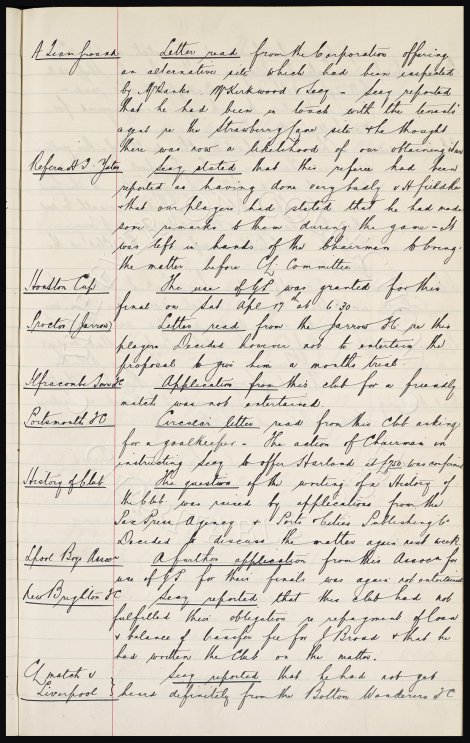 A Team ground Letter read from the Corporation offering
an alternative site which had been inspected
by Mr Banks, Mr Kirkwood & Secy - Secy reported
that he had been in touch with the tenants'
agent re the Strawberry Lane site & he thought
there was now a likelihood of our obtaining
Referee H J. Yates Secy stated that this referee had been
reported as having done very badly v Huddersfield
& that our players had stated that he had made
some remarks to them during the game - It
was left in hands of the Chairman to bring
the matter before CL Committee
Houston Cup The use of GP was granted for this
final on Sat Apl 17th at 6.30
Proctor (Jarrow) Letter read from the Jarrow FC re this
player. Decided however not to entertain the
proposal to give him a months trial.
Ilfracombe Town FC Application from this club for a friendly
match was not entertained.
Portsmouth FC Circular letter read from this Club asking
for a goalkeeper - The action of Chairman in
instructing Secy to offer Harland at £750 was confirmed
History of Club The question of the writing of a History of
the Club was raised by applications from the
Press Agency & Ports & Cities Publishing Co
Decided to discuss the matter again next week
Lpool Boys Assocn A further application from this Assocn for
use of GP for their finals was again not entertained
New Brighton FC Secy reported that this club had not
fulfilled their obligation re repayment of loan
& balance of transfer fee for J Broad & that he
had written the Club on the matter.
CL match v Secy reported that he had not yet
Liverpool } heard definitely from the Bolton Wanderers FC